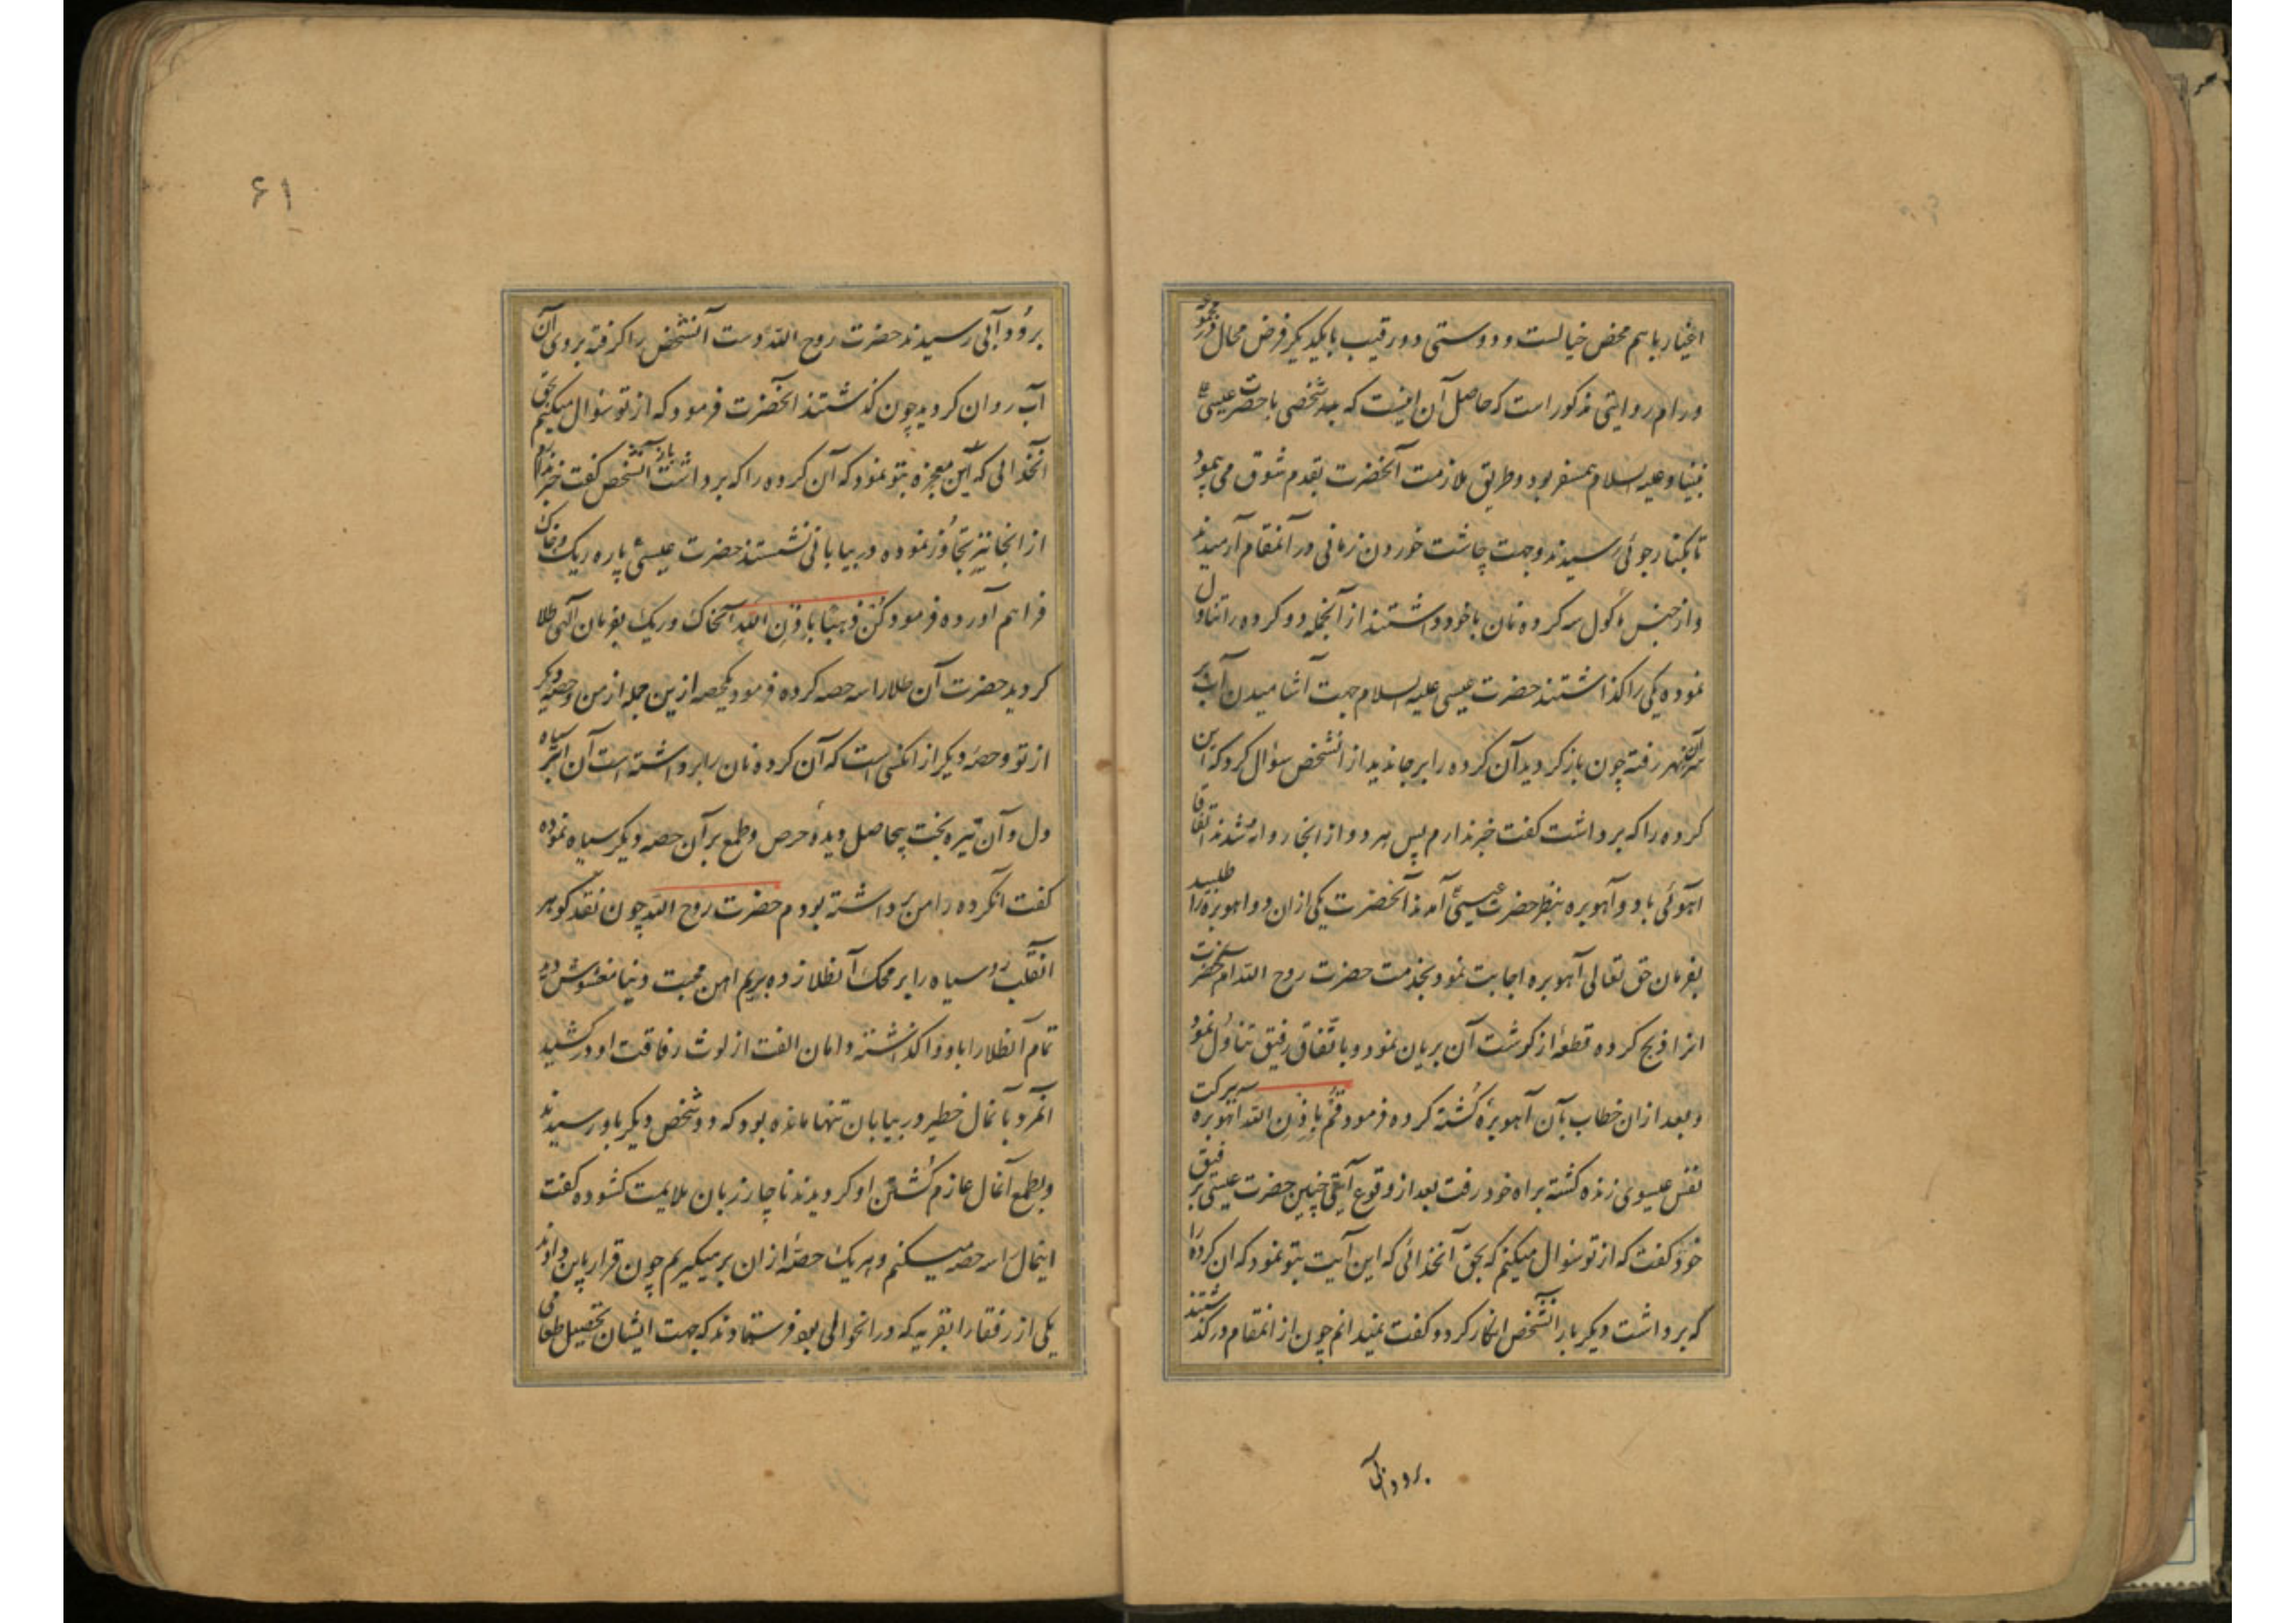 اغیار با هم محض خیالست و دوستی دو رقیب با یکدیگر فرض محال در مجموعهٔ
ورام روایتی مذکور است که حاصل آن اینست که شخصی با حضرت عیسی
نبینا و علیه السلام همسفر بود و طریق ملازمت آنحضرت بقدم شوق می پیمود
تا بکنار جوئی رسیدند و جهت چاشت خوردن زمانی در آنمقام آرمیدند
و از جنس مأکول سه کرده نان با خود داشتند از آنجمله دو کرده را تناول
نموده یکی را گذاشتند حضرت عیسی علیه السلام جهت آشامیدن آب بر
سر آن نهر رفته چون باز کردید آن کرده را بر جا ندید از آنشخص سؤال کرد که این
کرده را که برداشت کفت خبر ندارم پس هر دو از آنجا روانه شدند اتفاقا
آهوئی با دو آهوبره بنظر حضرت عیسی آمدند آنحضرت یکی از ان دو آهوبره را طلبید
بفرمان حق تعالی آهوبره اجابت نمود بخدمت حضرت روح الله آمد حضرت
انرا ذبح کرده قطعهٔ از کوشت آن بریان نمود و باتفاق رفیق تناول نمود
و بعد از ان خطاب بآن آهوبرهٔ کشته کرده فرمود قم باذن الله آهوبره ببرکت
نفس عیسوی زنده کشته براه خود رفت بعد از وقوع آیتی چنین حضرت عیسی برفیق
خود کفت که از تو سؤال میکنم که بحق آنخدائی که این آیت بتو نمود که ان کرده را
که برداشت دیکر بار آنشخص انکار کرد و کفت نمیدانم چون از انمقام درکذشتند
برود آبی
۶۱
برود آبی رسیدند حضرت روح الله دست آنشخص را کرفته بروی آن
آب روان کردید چون کذشتند آنحضرت فرمود که از تو سؤال میکنم بحق
آنخدائی که این معجزه بتو نمود که آن کرده را که برداشت باز آنشخص کفت خبر ندارم
از آنجا نیز تجاوز نموده در بیابانی نشستند حضرت عیسی پاره ریک و خاک
فراهم آورده فرمود کن ذهبا باذن الله آنخاک و ریک بفرمان الهی طلا
کردید حضرت آن طلا را سه حصه کرده فرمود یکحصه ازین جمله از من و حصهٔ دیکر
از تو و حصهٔ دیکر از انکس است که آن کرده نان را برداشته است آن ابتر سیاه
دل و آن تیره بخت بیحاصل دیدهٔ حرص و طمع بر آن حصه دیکر سیاه نموده
کفت آنکرده را من برداشته بودم حضرت روح الله چون نقد کوهر
آنقلب رو سیاه را بر محک آنطلا زده بریم آهن محبت دنیا مغشوش دید
تمام آنطلا را باو واکذاشته دامان الفت از لوث رفاقت او درکشید
آنمرد با آنمال خطیر در بیابان تنها مانده بود که دو شخص دیکر باو رسیدند
و بطمع آنمال عازم کشتن او کردیدند ناچار زبان ملایمت کشوده کفت
اینمال را سه حصه میکنم و هر یک حصهٔ از ان بر میکیریم چون قرار باین دادند
یکی از رفقا را بقریه که در آنحوالی بود فرستادند که جهت ایشان تحصیل طعامی